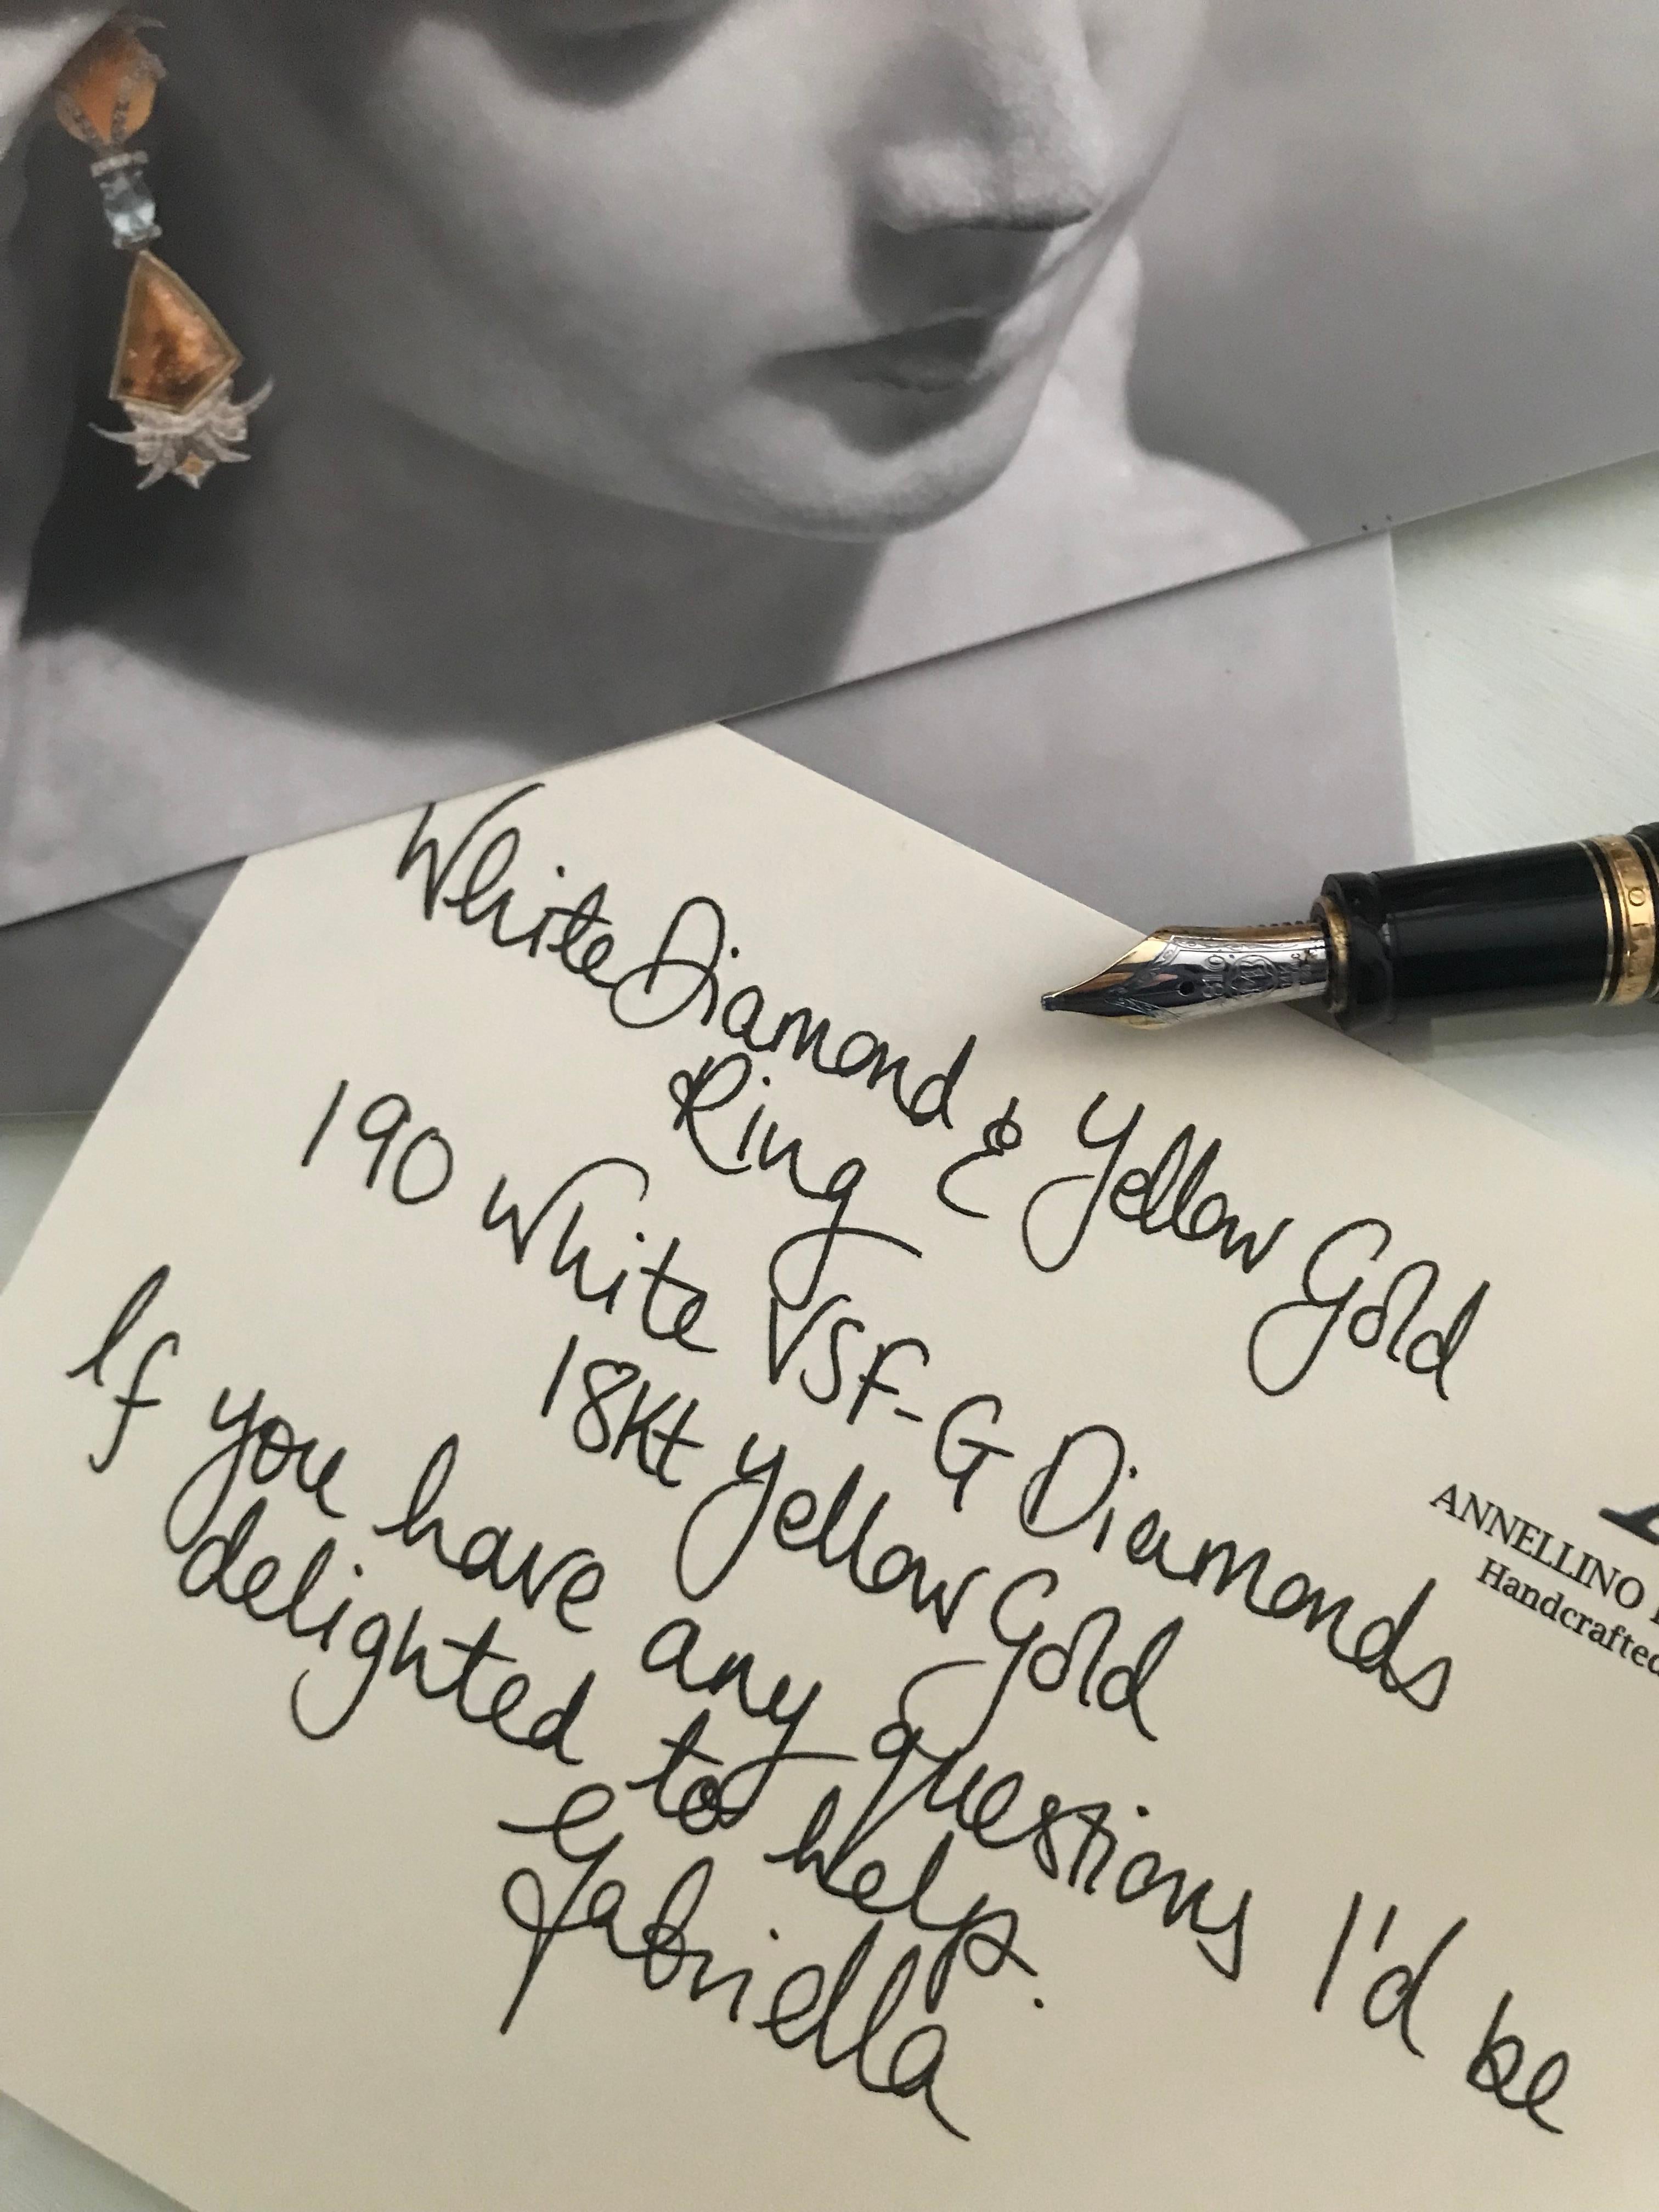 White Diamond & Yellow Gold
Ring
190 White VSF-G Diamonds
18Kt Yellow Gold
If you have any questions I'd be
delighted to help.
Gabriella
ANNELLINO
Handcrafted